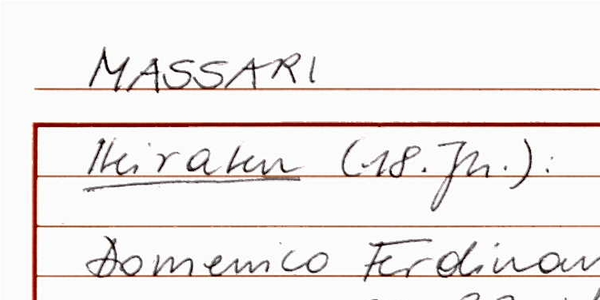 MASSARI
Heiraten (18. Jh.):
Domenico Ferdinan